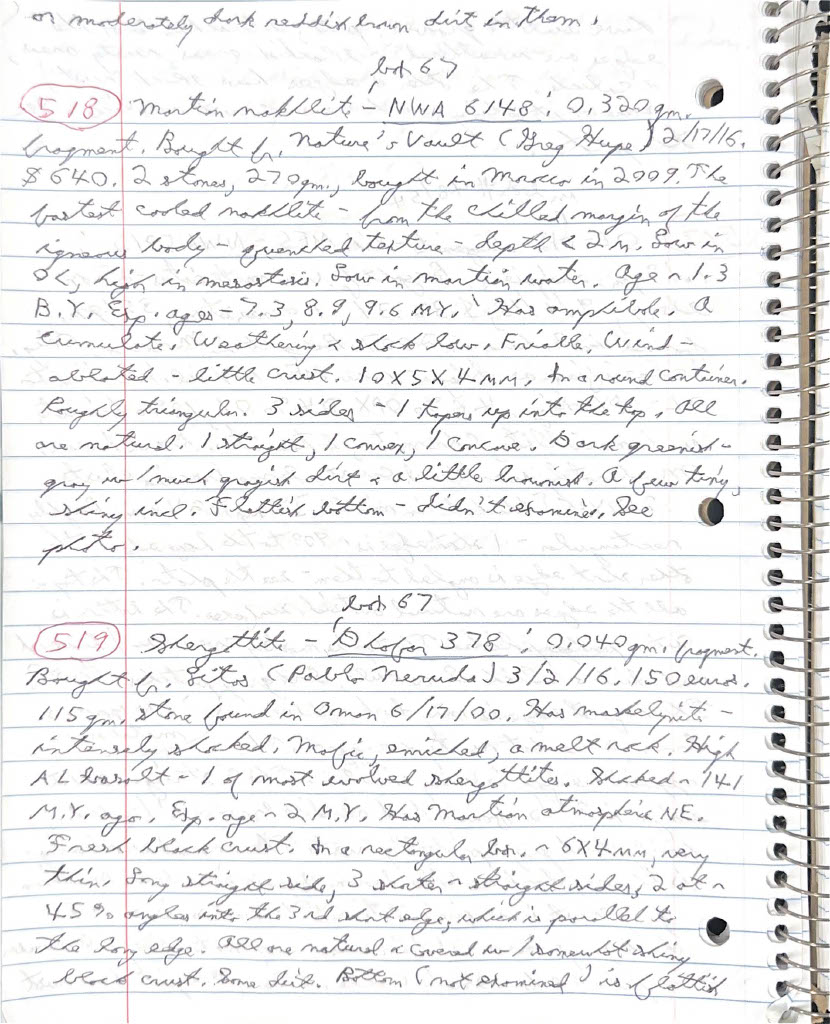 or moderately dark reddish brown dirt in them.
box 67
518 Martian nakhlite - NWA 6148: 0.320 gm.
fragment. Bought fr. Nature's Vault (Greg Hupe) 2/17/16.
$640. 2 stones, 270 gm., bought in Morocco in 2009. The
fastest cooled nakhlite - from the chilled margin of the
igneous body - quenched texture - depth < 2 m. Low in
OL, high in mesostasis. Low in martian water. Age ~ 1.3
B.Y. Exp. ages - 7.3, 8.9, 9.6 MY. Has amphibole. A
cumulate. Weathering & shock low. Friable, Wind-
ablated - little crust. 10X5X4 MM. In a round container.
Roughly triangular. 3 sides - 1 tapers up into the top. All
are natural. 1 straight, 1 convex, 1 concave. Dark greenish-
gray w/ much grayish dirt & a little brownish. A few tiny,
shiny incl. Flattish bottom - didn't examine. See
photo.
box 67
519 Shergottite - Dhofar 378: 0.040 gm. fragment.
Bought fr. Litos (Pablo Neruda) 3/2/16. 150 euros.
115 gm. stone found in Oman 6/17/00. Has maskelynite -
intensely shocked. Mafic, enriched, a melt rock. High
AL basalt - 1 of most evolved shergottites. Shocked ~ 141
M.Y. ago. Exp. age ~ 2 M.Y. Has Martian atmospheric NE.
Fresh black crust. In a rectangular box. ~ 6X4 MM, very
thin. Long straight side, 3 shorter ~ straight sides, 2 at ~
45° angles into the 3rd short edge, which is parallel to
the long edge. All are natural & covered w/ somewhat shiny
black crust. Some dirt. Bottom (not examined) is flattish